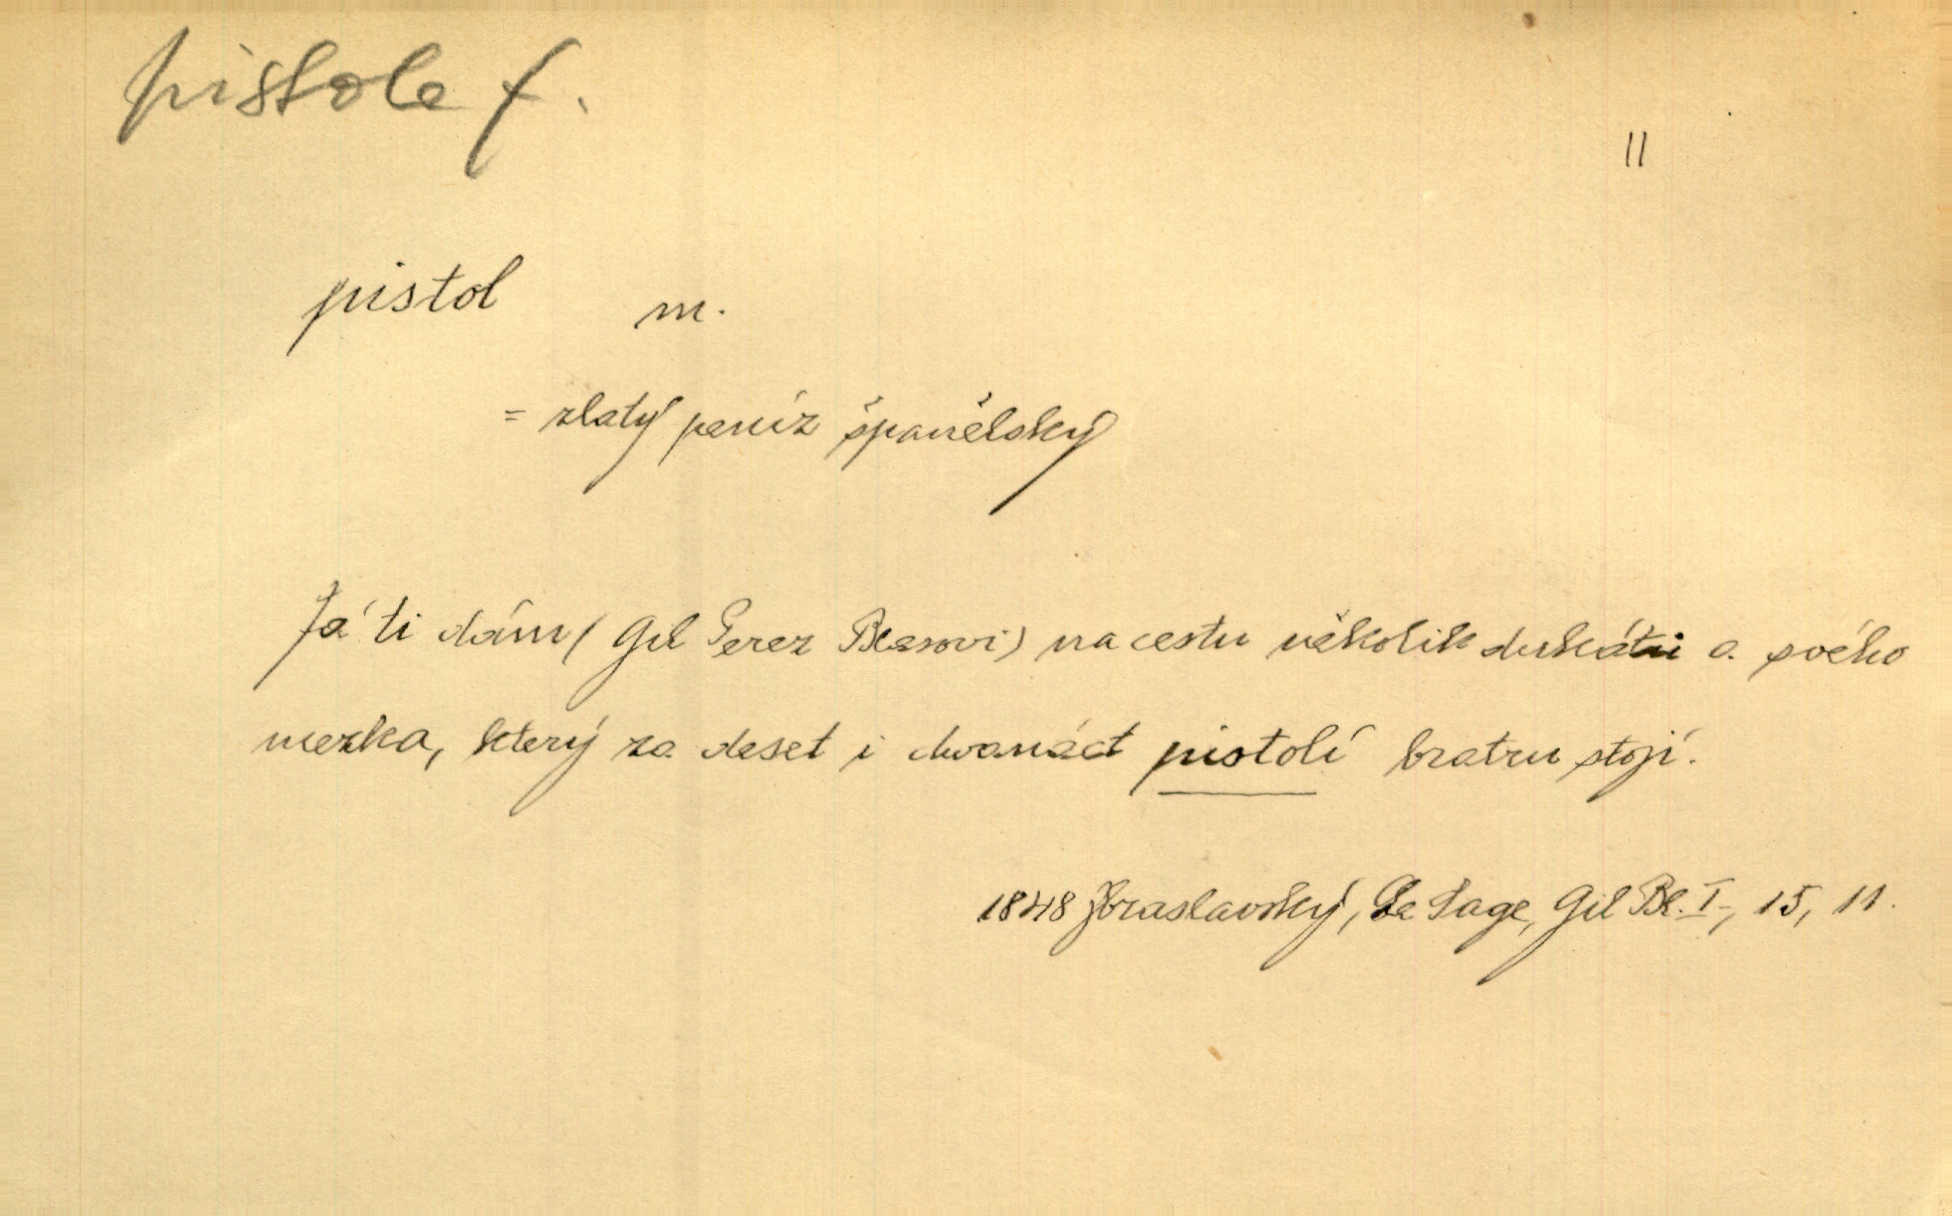 pistole f.
11
pistol m.
= zlatý peníz španělský
Já ti dám (Gil Perez Blasovi) na cestu několik dukátů a svého
mezka, který za deset i dvanáct pistolí bratru stojí.
1848 Zbraslavský, Le Sage, Gil Bl. I., 15, 11.